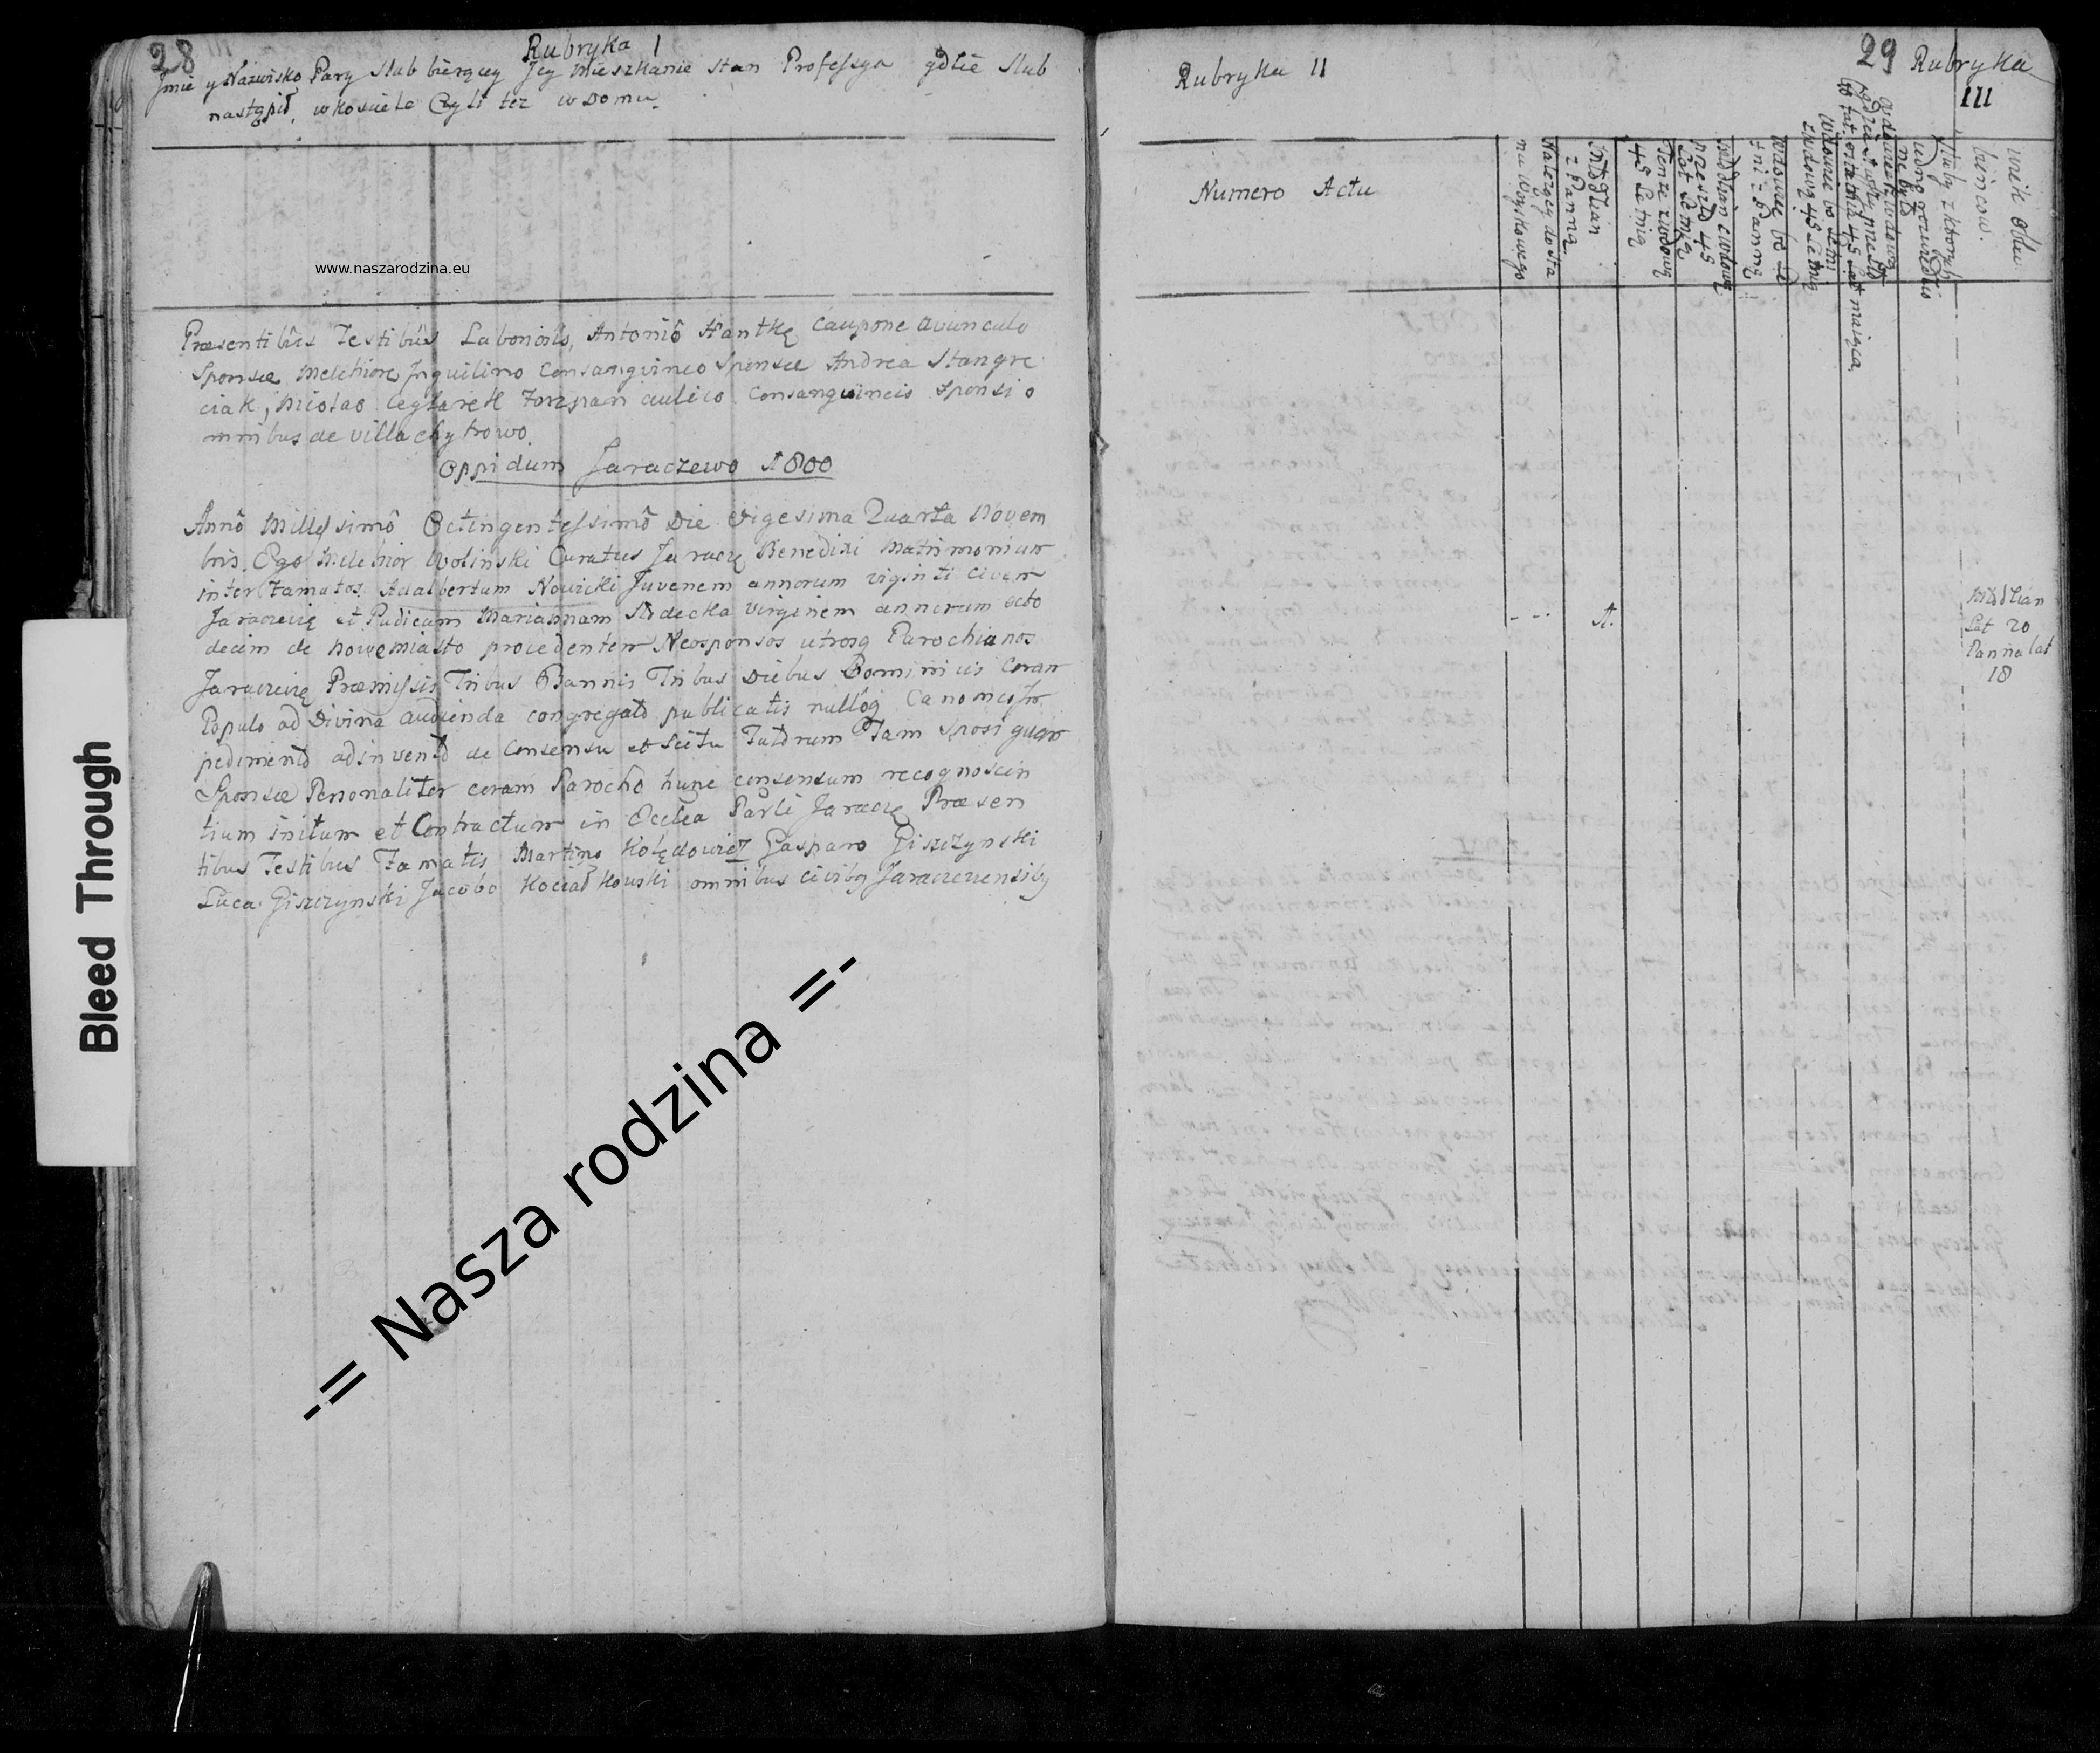 28
Rubryka I
Jmie y Nazwisko Pary slub biorącey Jey Mieszkanie stan Professya gdzie slub
nastąpił, w kosciele Czyli tez w Domu.
www.naszarodzina.eu
Præsentibûs Testibûs Laboriosis, Antoniô Hantkę Caupone avunculo
Sponsæ Melchiore Inquilino Consangvineo Sponsæ Andrea Stangre
ciak, Ceglarek Forszpan aulico Consangvineis Sponsi o
mnibus de villa chytrowo.
Oppidum Jaraczewo 1800
Annô Millessimô Octingentessimô Die vigesima Quarta Novem
bris. Ego Melchior Wolinski Curatus Jaracze Benedixi Matrimonium
inter Famatos Adalbertum Nowicki Juvenem annorum viginti civem
Jaraczewię et Pudicam Mariannam virginem annorum octo
decim de Nowemiasto procedentem Neosponsos utrosq Parochianos
Jaraczewię Præmissis Tribus Bannis Tribus Diebus Dominicis Coram
Populo ad Divina audienda congregato publicatis nulloq Canonico Im
pedimento adinvento de Consensu et Scitu Tutorum Tam Sposi quam
Sponsæ Personaliter coram Parocho hunc consensum recognoscen
tium initum et Contractum in Ecclea Parli Jaracze Præsen
tibus Testibus Famatis Martino Kolędowicz Gasparo Giszczynski
Luca Giszczynski Jacobo Kociałkowski omnibus civibq Jaraczewensibq
-= Nasza rodzina =-
Bleed Through
29
Rubryka II
Rubryka
III
Numero Actu
Nalezący do sta
nu Woyskowego
Młodzian
z Panną
Tenze z wdową
45 Letnią
Młodzian z wdową
przeszło 45
Lat Letnią
Wdowiec be
z Panną
z wdową 45 Letnią
wiek oblu
bieńcow.
1.
Młodzian
Lat 20
Panna lat
18